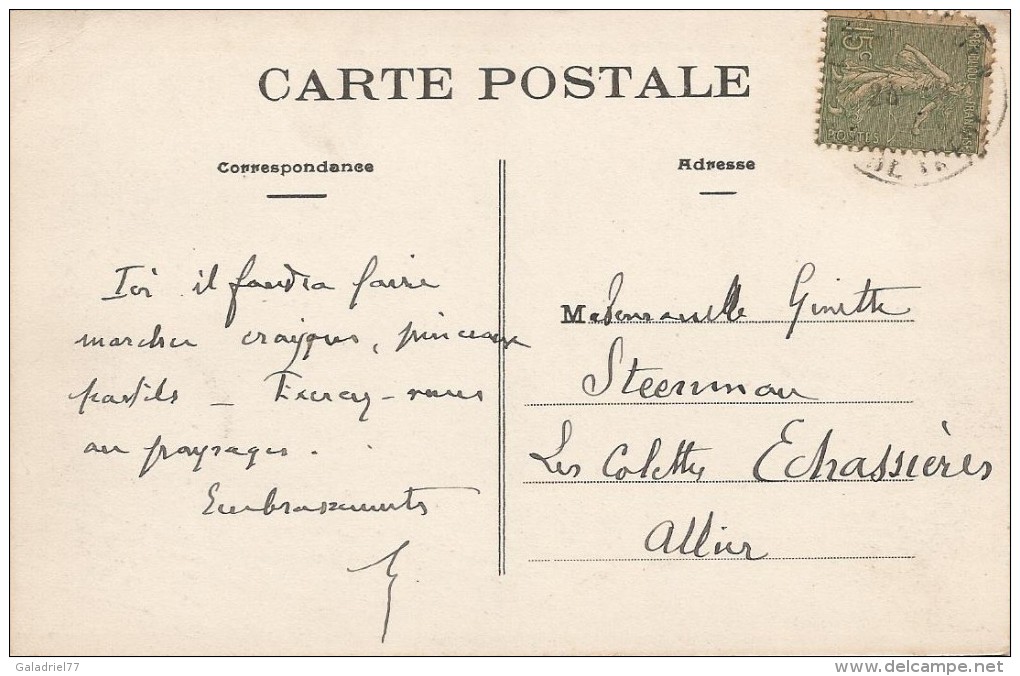 CARTE POSTALE
15c
REPUBLIQUE FRANÇAISE
POSTES
28
DE
Correspondance
Adresse
Ici il faudra faire
marcher crayons, pinceaux
pastils — Exercez-vous
au paysages.
Embrassements
Mademoiselle Ginette
Steenman
Les Colettes Echassières
Allier
Galadriel77
www.delcampe.net